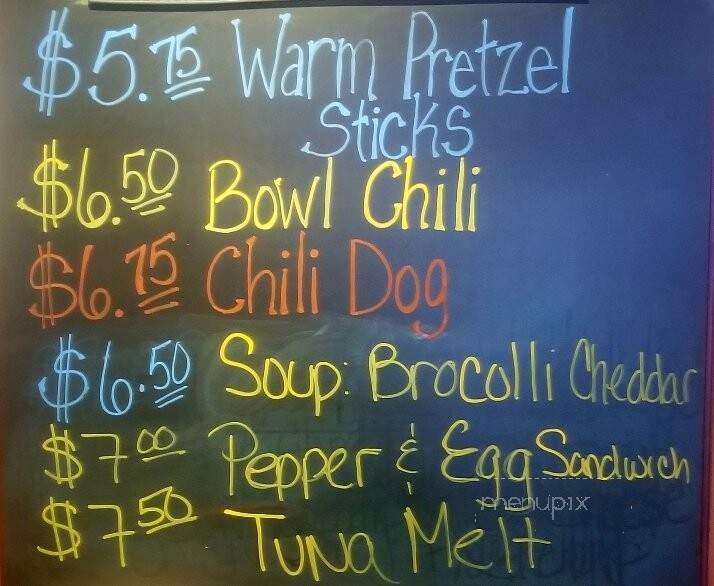 $5.75 Warm Pretzel
Sticks
$6.50 Bowl Chili
$6.75 Chili Dog
$6.50 Soup: Brocolli Cheddar
$7.00 Pepper & Egg Sandwich
menupix
$7.50 Tuna Melt